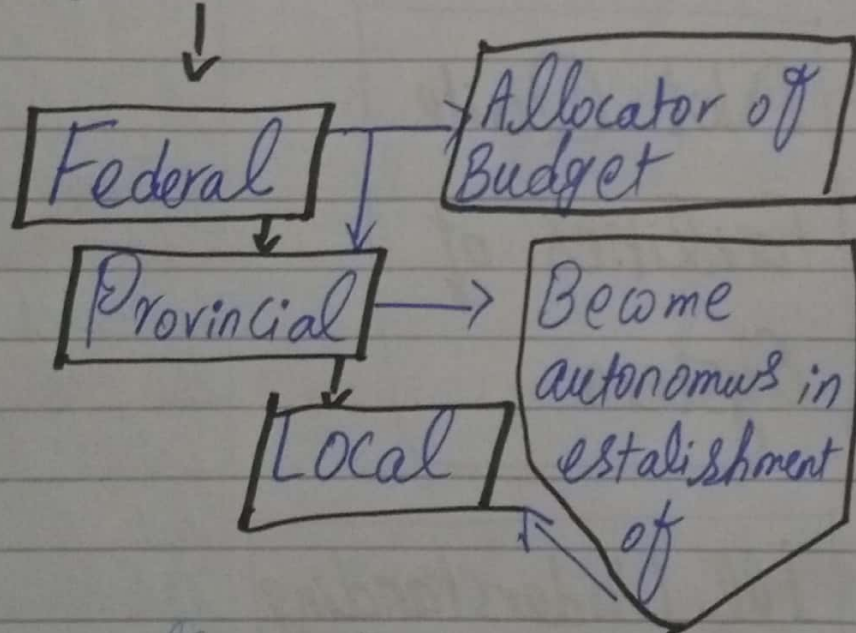 Federal
Allocator of
Budget
Provincial
Become
autonomus in
estalishment
of
Local